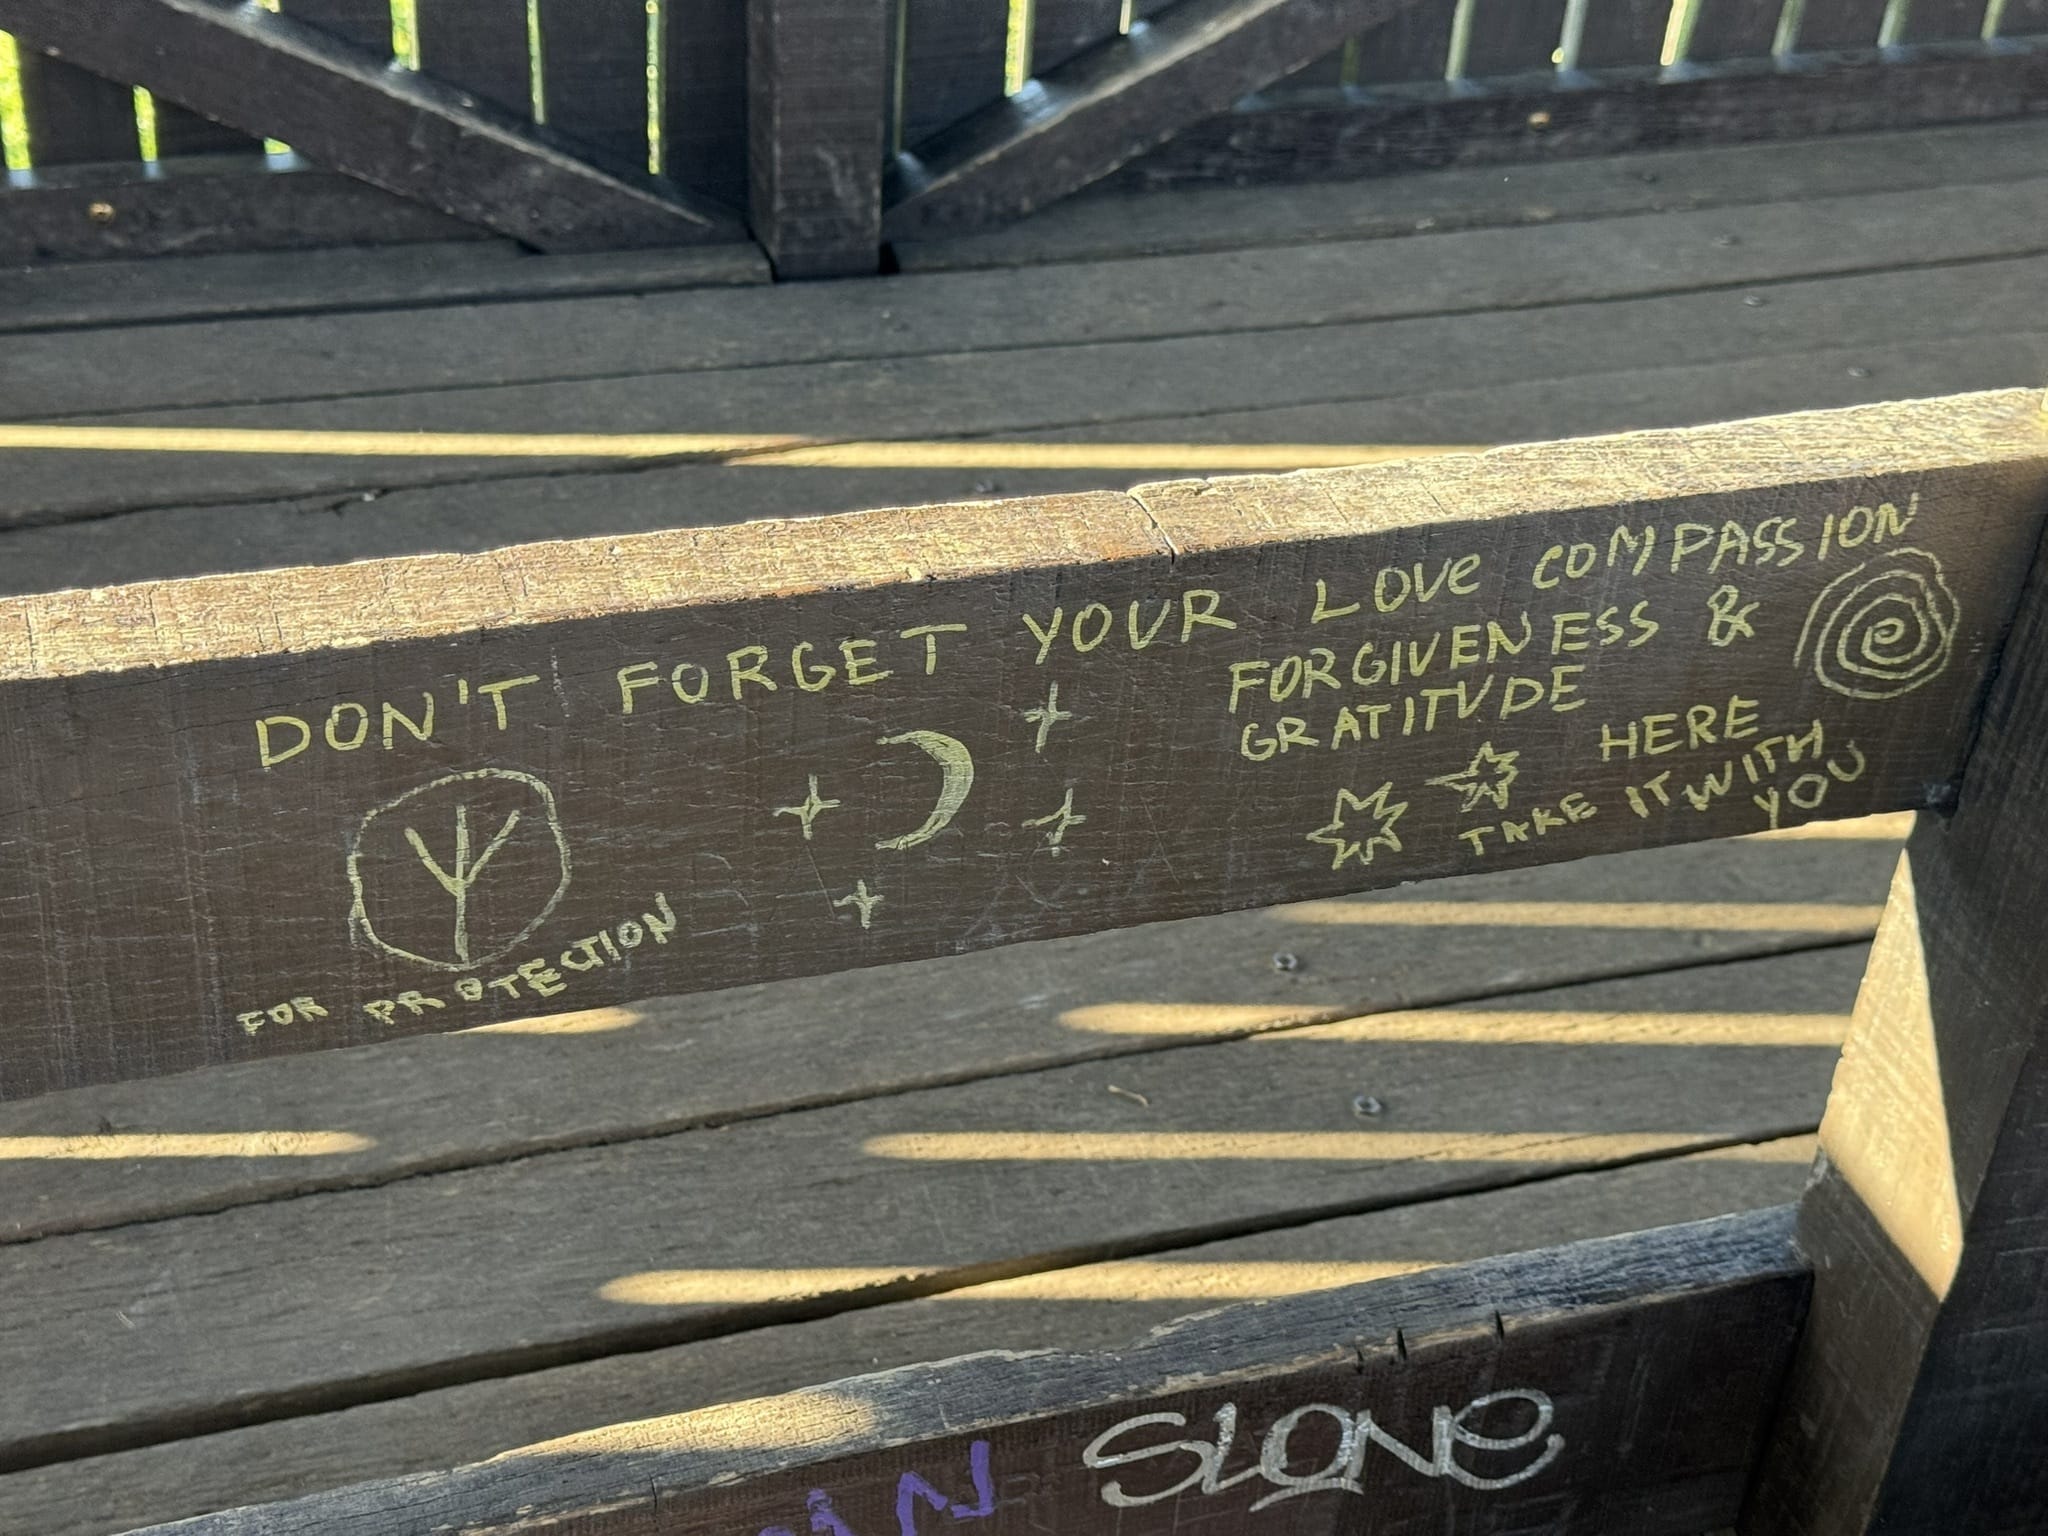 DON'T FORGET YOUR LOVE COMPASSION
FORGIVENESS &
GRATITUDE
HERE
TAKE IT WITH
YOU
FOR PROTECTION
SLONE